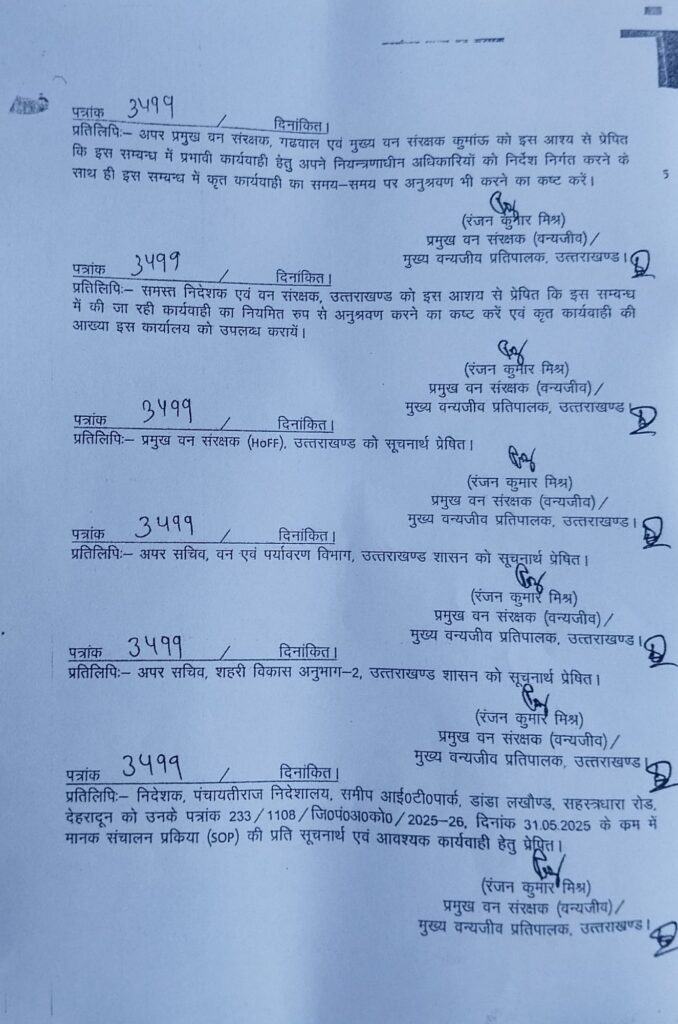 पत्रांक 3499 / दिनांकित।
प्रतिलिपिः– अपर प्रमुख वन संरक्षक, गढवाल एवं मुख्य वन संरक्षक कुमांऊ को इस आश्य से प्रेषित
कि इस सम्बन्ध में प्रभावी कार्यवाही हेतु अपने नियन्त्रणाधीन अधिकारियों को निर्देश निर्गत करने के
साथ ही इस सम्बन्ध में कृत कार्यवाही का समय–समय पर अनुश्रवण भी करने का कष्ट करें।
5
(रंजन कुमार मिश्र)
प्रमुख वन संरक्षक (वन्यजीव)/
मुख्य वन्यजीव प्रतिपालक, उत्तराखण्ड।
पत्रांक 3499 / दिनांकित।
प्रतिलिपिः– समस्त निदेशक एवं वन संरक्षक, उत्तराखण्ड को इस आशय से प्रेषित कि इस सम्बन्ध
में की जा रही कार्यवाही का नियमित रुप से अनुश्रवण करने का कष्ट करें एवं कृत कार्यवाही की
आख्या इस कार्यालय को उपलब्ध करायें।
(रंजन कुमार मिश्र)
प्रमुख वन संरक्षक (वन्यजीव)/
मुख्य वन्यजीव प्रतिपालक, उत्तराखण्ड।
पत्रांक 3499 / दिनांकित।
प्रतिलिपिः– प्रमुख वन संरक्षक (HoFF), उत्तराखण्ड को सूचनार्थ प्रेषित।
(रंजन कुमार मिश्र)
प्रमुख वन संरक्षक (वन्यजीव)/
मुख्य वन्यजीव प्रतिपालक, उत्तराखण्ड।
पत्रांक 3499 / दिनांकित।
प्रतिलिपिः– अपर सचिव, वन एवं पर्यावरण विभाग, उत्तराखण्ड शासन को सूचनार्थ प्रेषित।
(रंजन कुमार मिश्र)
प्रमुख वन संरक्षक (वन्यजीव)/
मुख्य वन्यजीव प्रतिपालक, उत्तराखण्ड।
पत्रांक 3499 / दिनांकित।
प्रतिलिपिः– अपर सचिव, शहरी विकास अनुभाग–2, उत्तराखण्ड शासन को सूचनार्थ प्रेषित।
(रंजन कुमार मिश्र)
प्रमुख वन संरक्षक (वन्यजीव)/
मुख्य वन्यजीव प्रतिपालक, उत्तराखण्ड।
पत्रांक 3499 / दिनांकित।
प्रतिलिपिः– निदेशक, पंचायतीराज निदेशालय, समीप आई0टी0पार्क, डांडा लखौण्ड, सहस्त्रधारा रोड,
देहरादून को उनके पत्रांक 233/1108/जि0पं0अ0को0/2025–26, दिनांक 31.05.2025 के कम में
मानक संचालन प्रकिया (SOP) की प्रति सूचनार्थ एवं आवश्यक कार्यवाही हेतु प्रेषित।
(रंजन कुमार मिश्र)
प्रमुख वन संरक्षक (वन्यजीव)/
मुख्य वन्यजीव प्रतिपालक, उत्तराखण्ड।